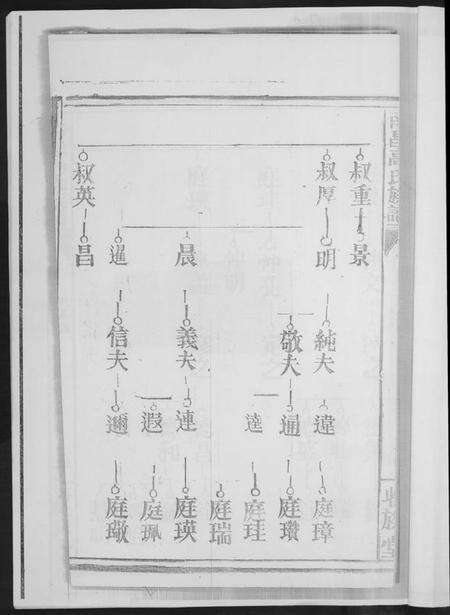 叔重 景
叔厚 明 純夫 違 庭璋
敬夫 通 庭瓚
達 庭珪
庭瑞
晨 義夫 連 庭瑛
遐 庭珮
暹 信夫 邇 庭璥
叔英 昌